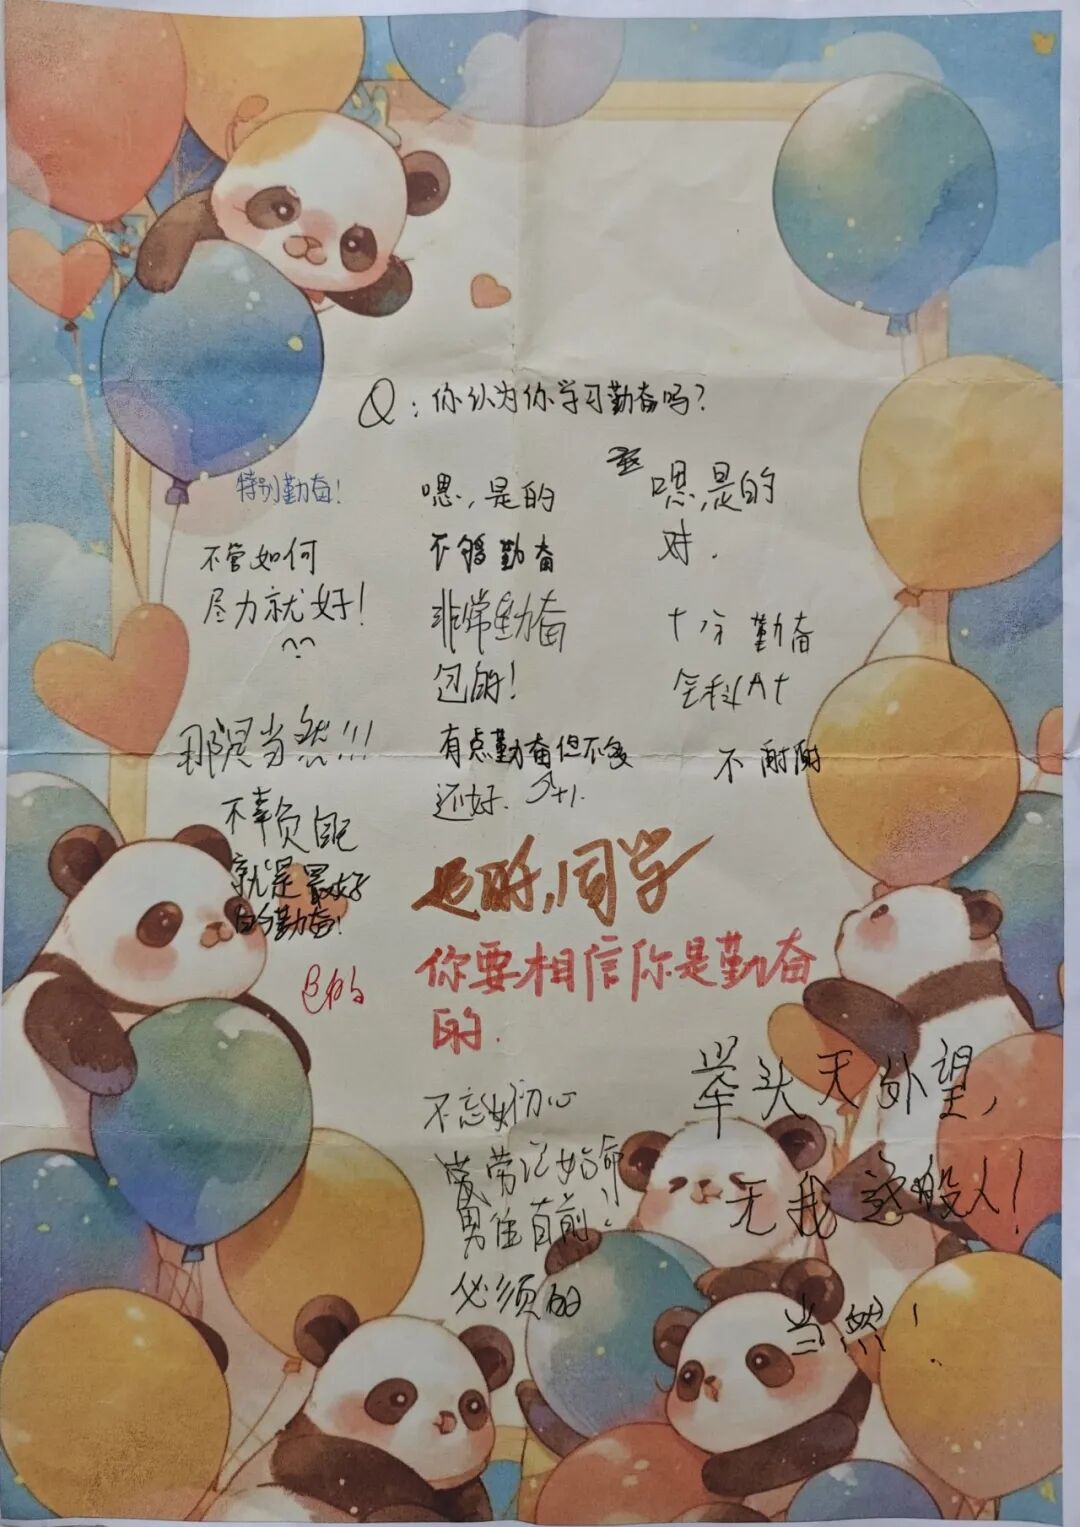 Q：你认为你学习勤奋吗？
特别勤奋！
不管如何
尽力就好！
那是当然！！！
不辜负自己
就是最好
的勤奋！
包的
嗯，是的
不够勤奋
非常勤奋
包的！
有点勤奋但不多
还好. +1.
嗯，是的
对.
十分勤奋
全科A+
不
同学
你要相信你是勤奋
的.
不忘初心
必须的
举头天外望，
无我这般人！
当然！